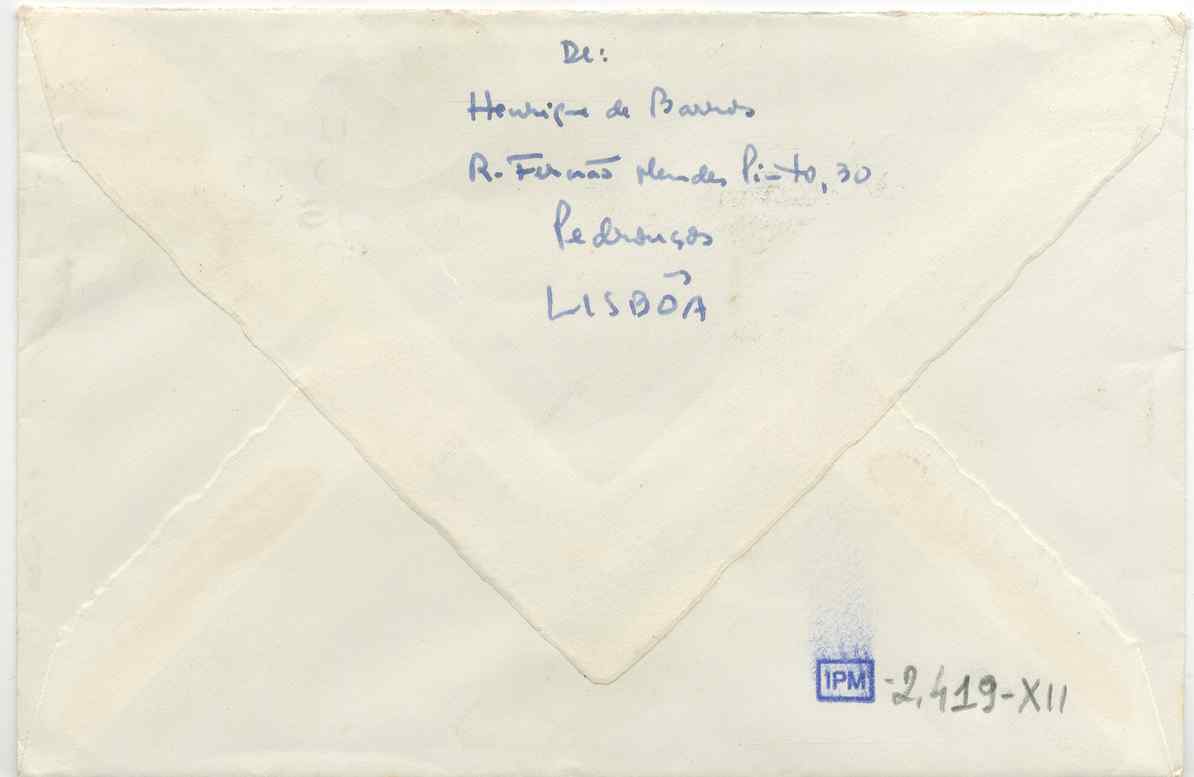 De:
Henrique de Barros
R. Fernão Mendes Pinto, 30
Pedrouços
LISBÔA
IPM -2.419-XII